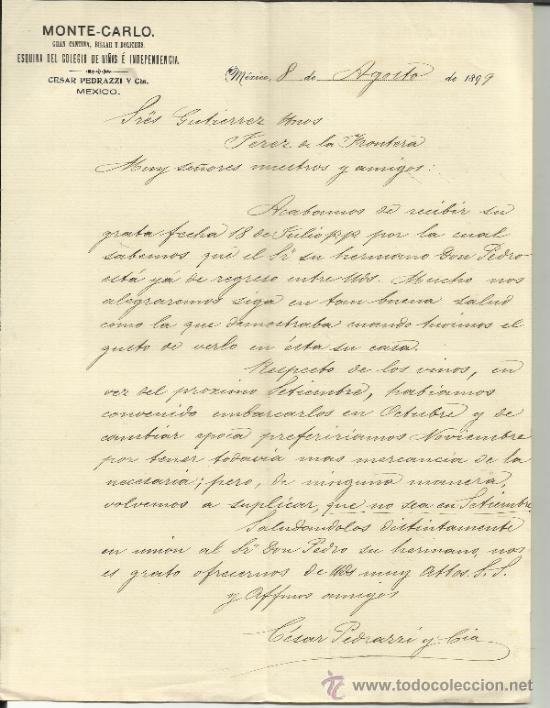 MONTE-CARLO.
GRAN CANTINA, BILLAR Y BOLICHES.
ESQUINA DEL COLEGIO DE NIÑAS É INDEPENDENCIA.
CESAR PEDRAZZI Y Cia.
MEXICO.
México, 8 de Agosto de 1899
Sres Gutierrez Hnos
Jerez de la Frontera
Muy señores nuestros y amigos:
Acabamos de recibir su
grata fecha 18 de Julio p.p. por la cual
sabemos que el Sr su hermano Don Pedro
está yá de regreso entre Uds. Mucho nos
alegraremos siga en tam buena salud
como la que demostraba cuando tuvimos el
gusto de verlo en ésta su casa.
Respecto de los vinos, en
vez del proximo Setiembre, habíamos
convenido embarcarlos en Octubre y de
cambiar epoca prefeririamos Noviembre
por tener todavia mas mercancia de la
necesaria; pero, de ninguna manera,
volvemos a suplicar, que no sea en Setiembre
Saludandolos distintamente
en union al Sr Don Pedro su hermano, nos
es grato ofrecernos de Uds muy Attos. S. S.
y Affmos amigos
César Pedrazzi y Cia
todocoleccion
www.todocoleccion.net